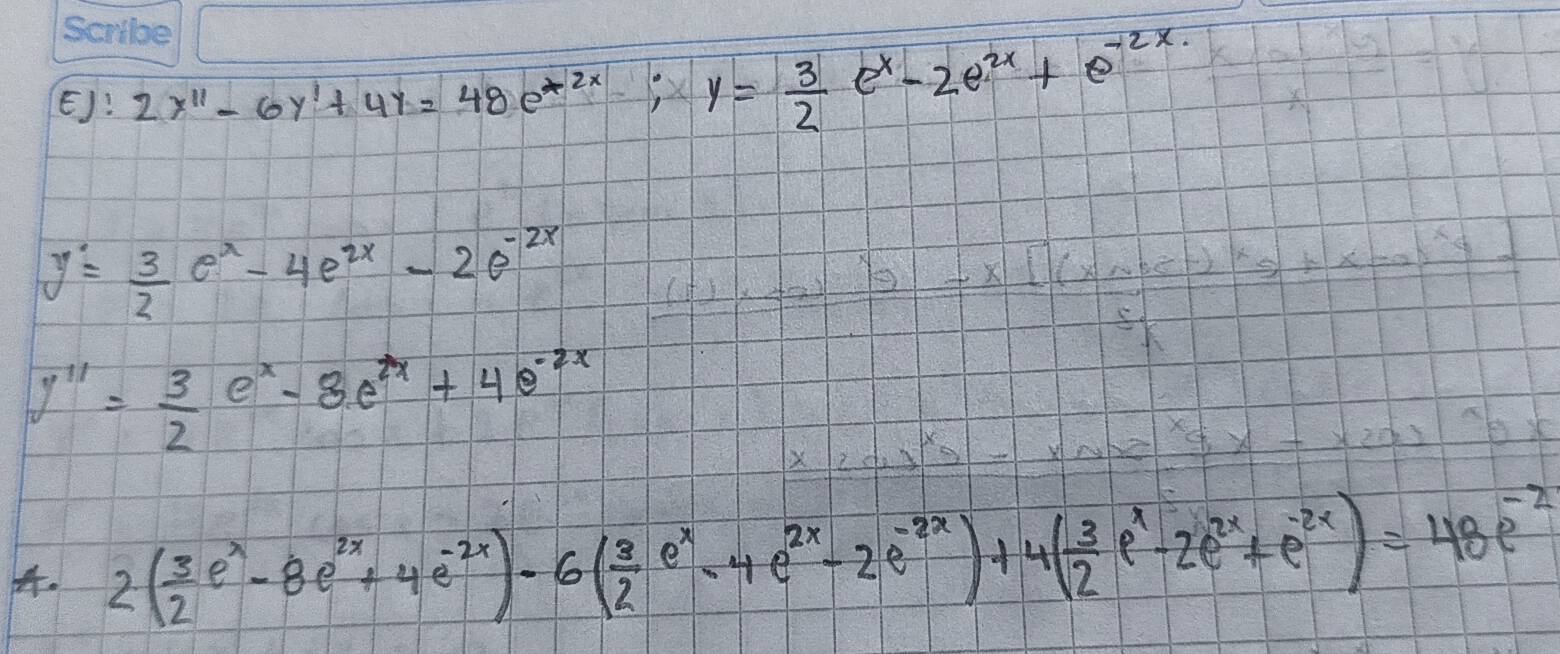 Scribe
EJ: 2y'' - 6y' + 4y = 48e^{-2x} ; y = \frac{3}{2} e^x - 2e^{2x} + e^{-2x}.
y' = \frac{3}{2} e^x - 4e^{2x} - 2e^{-2x}
y'' = \frac{3}{2} e^x - 8e^{2x} + 4e^{-2x}
2(\frac{3}{2} e^x - 8e^{2x} + 4e^{-2x}) - 6(\frac{3}{2} e^x - 4e^{2x} - 2e^{-2x}) + 4(\frac{3}{2} e^x - 2e^{2x} + e^{-2x}) = 48e^{-2}